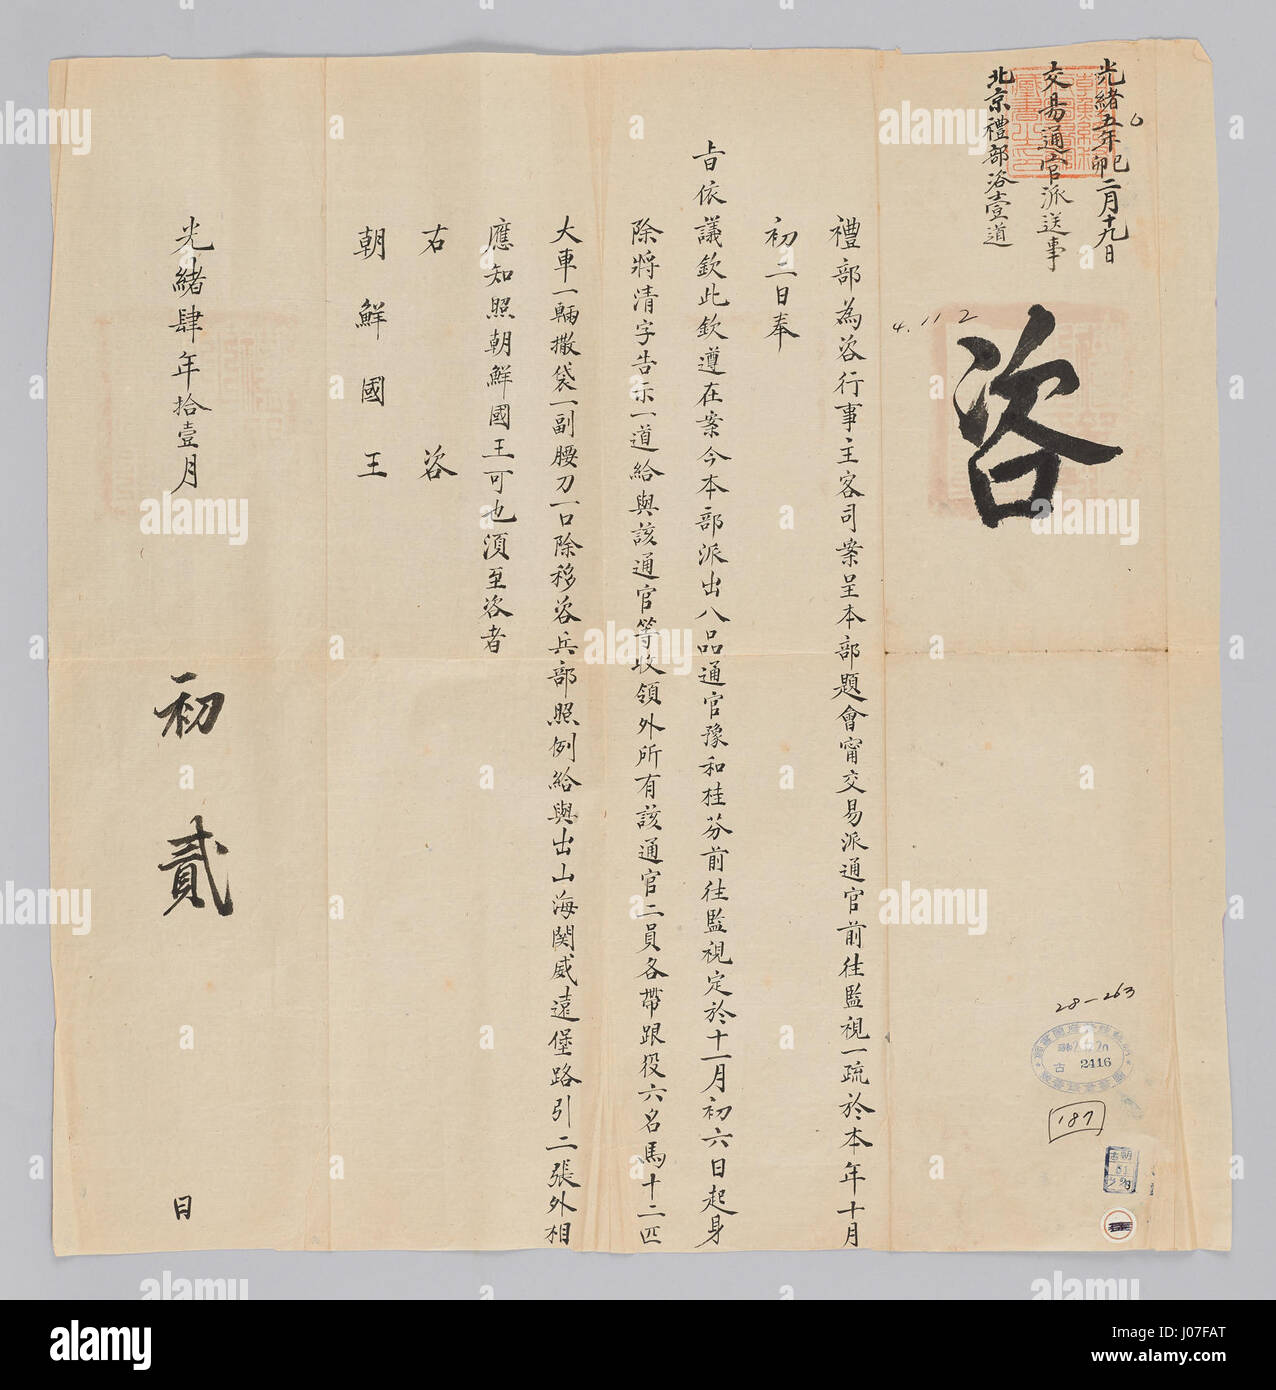 光緒五年己卯二月十九日
交易通官派送事
北京禮部咨壹道
咨
4. 11 2
禮部為咨行事主客司案呈本部題會甯交易派通官前往監視一疏於本年十月
初二日奉
旨依議欽此欽遵在案今本部派出八品通官豫和桂芬前往監視定於十一月初六日起身
除將清字告示一道給與該通官等收領外所有該通官二員各帶跟役六名馬十二匹
大車一輛撒袋一副腰刀一口除移咨兵部照例給與出山海関威遠堡路引二張外相
應知照朝鮮國王可也須至咨者
右咨
朝鮮國王
光緒肆年拾壹月初貳日
28-263
古 2416
187
alamy
Image ID: J07FAT
www.alamy.com